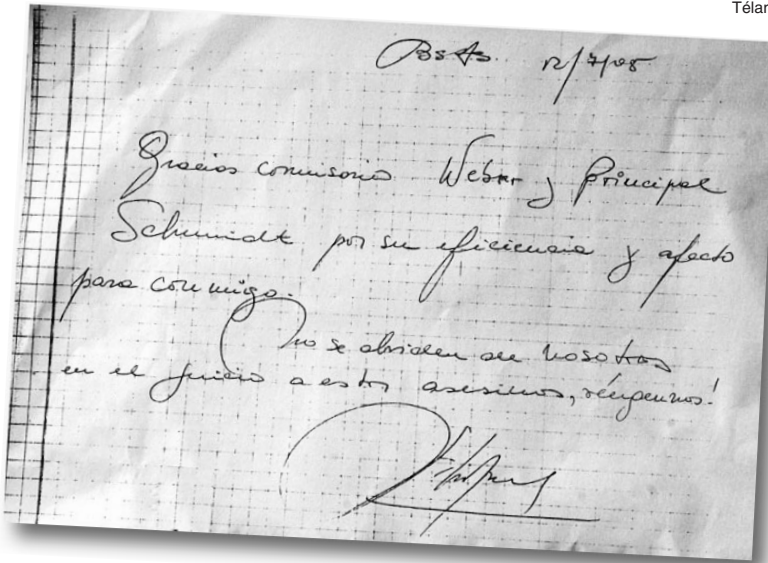 Télam
Bs As. 12/7/05
Gracias comisario Weber y Principal
Schumidt por su eficiencia y afecto
para conmigo.
no se olviden de nosotros
en el juicio a estos asesinos, vénguennos!